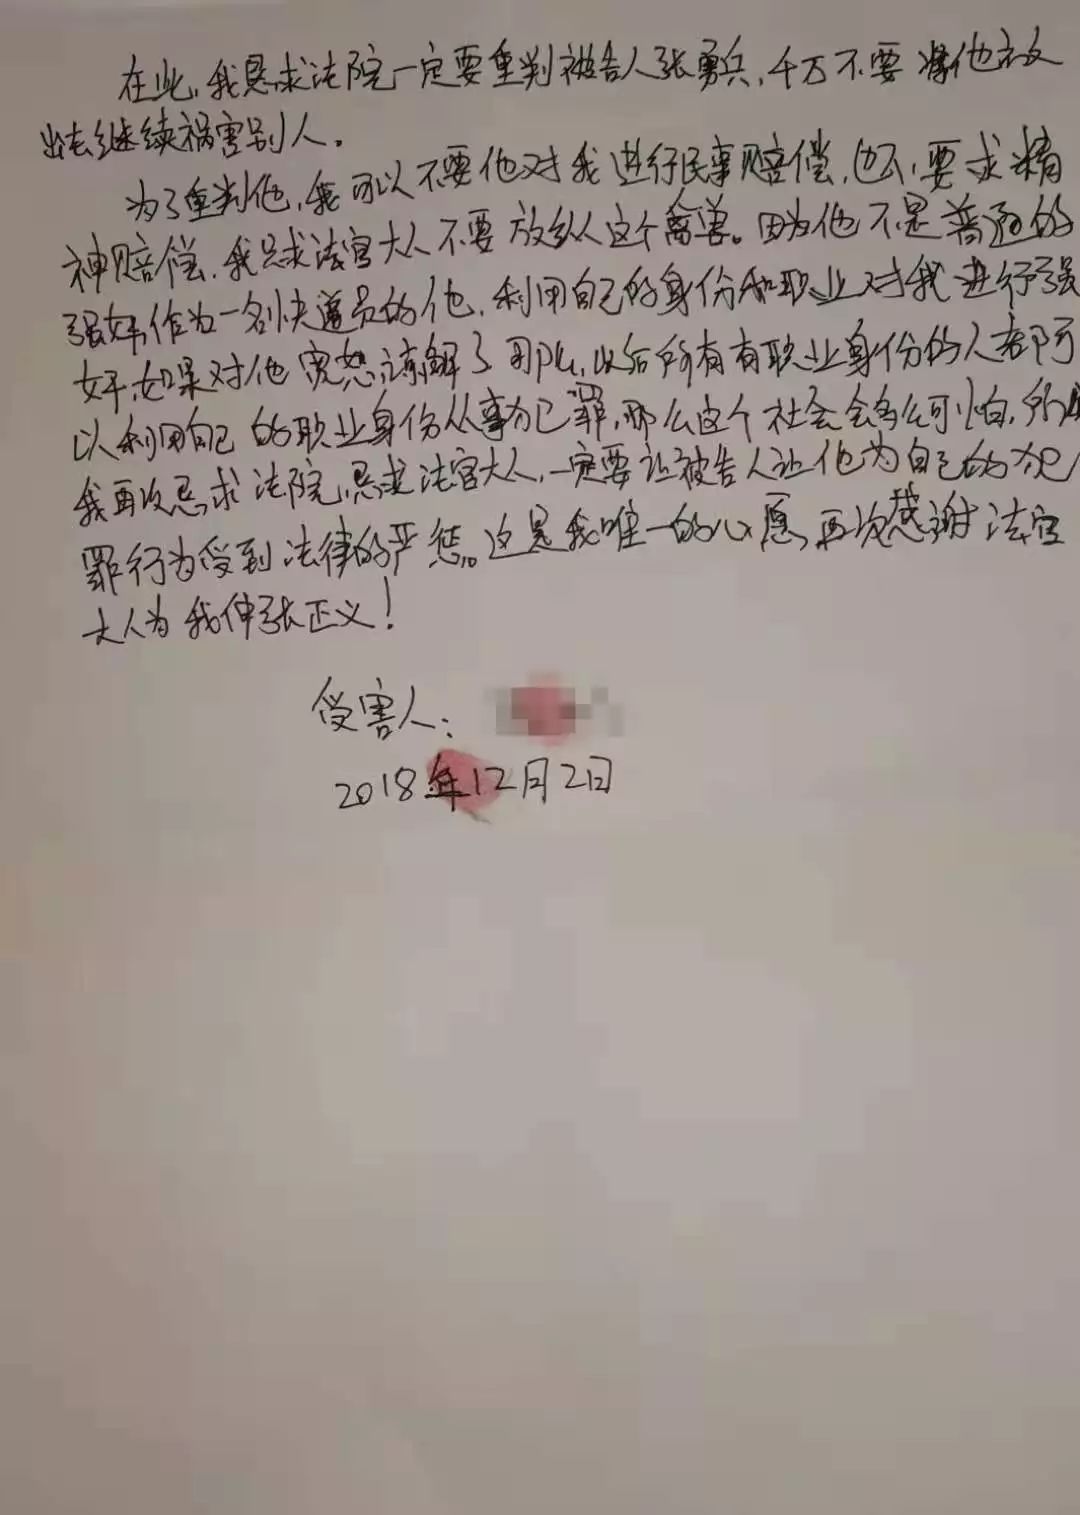 在此,我恳求法院一定要重判被告人张勇兵,千万不要将他放
出去继续祸害别人。
为了重判他,我可以不要他对我进行民事赔偿,也不要求精
神赔偿,我只求法官大人不要放纵这个禽兽。因为他不是普通的
强奸作为一名快递员的他,利用自己的身份和职业对我进行强
奸,如果对他宽恕谅解了那么,以后所有有职业身份的人都可
以利用自己的职业身份从事犯罪,那么这个社会会多么可怕,所以
我再次恳求法院,恳求法官大人,一定要让被告人让他为自己的犯
罪行为受到法律的严惩。这是我唯一的心愿,再次感谢法官
大人为我伸张正义!
受害人:
2018年12月2日